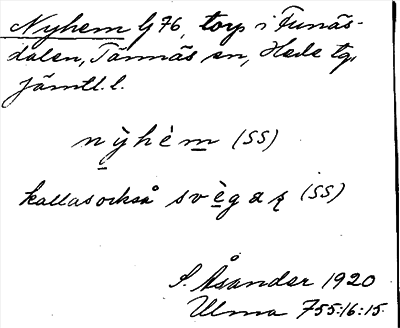 Nyhem G 76, torp i Funäs-
dalen, Tännäs sn, Hede tg,
Jämtl. l.
nỳhèm (SS)
kallas också svègaʀ (SS)
S. Åsander 1920
Ulma 755:16:15.